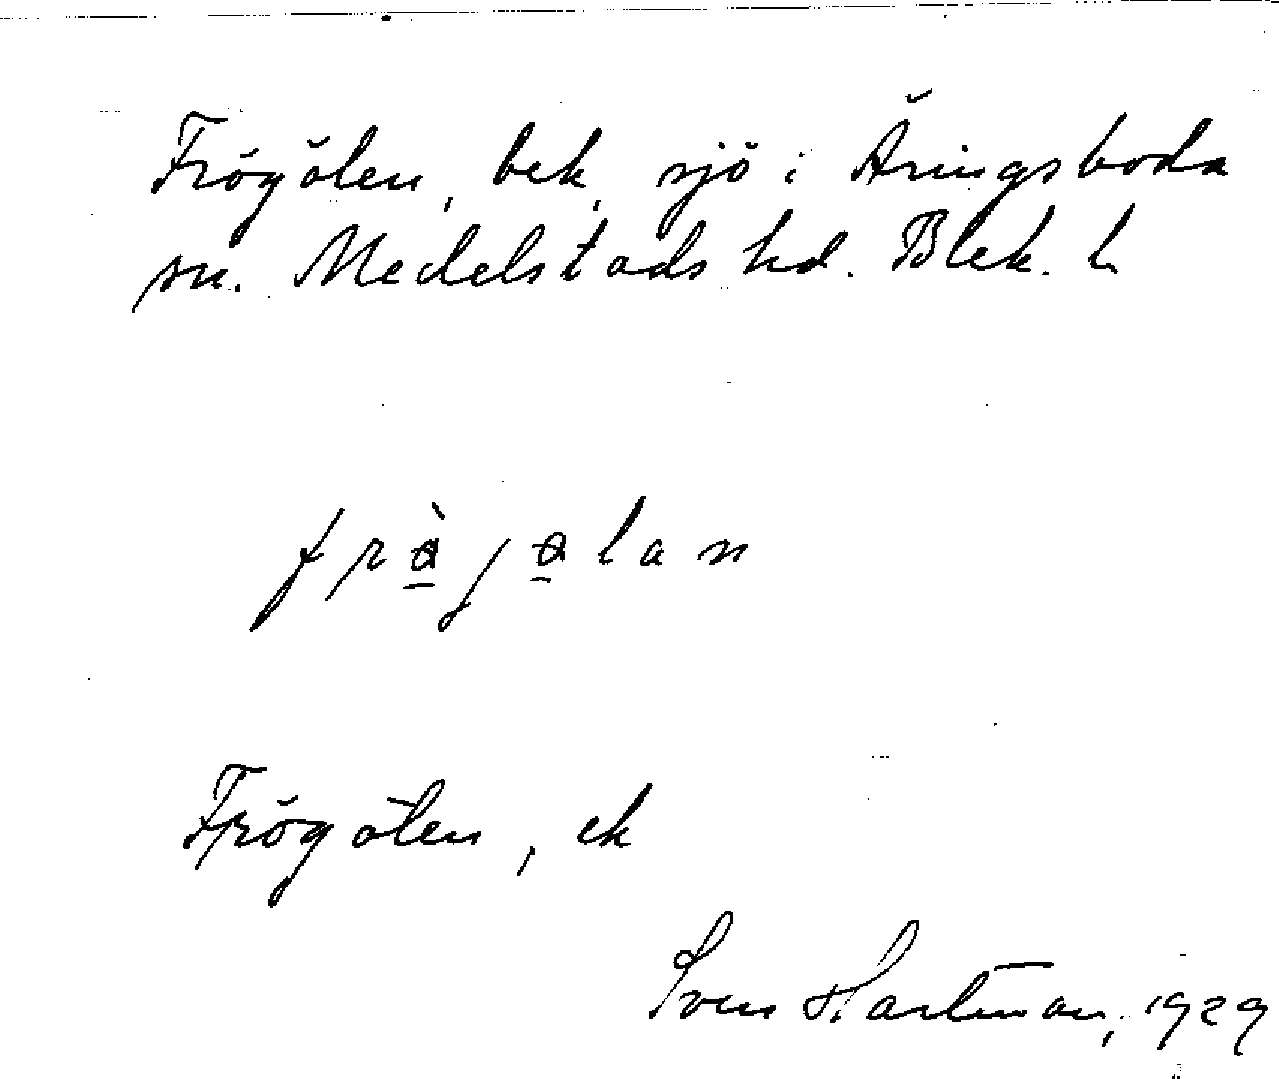 Frögölen, bek, sjö i Äringsboda
sn. Medelstads hd. Blek. l.
Frögölen, ek
Sven Hartman, 1929